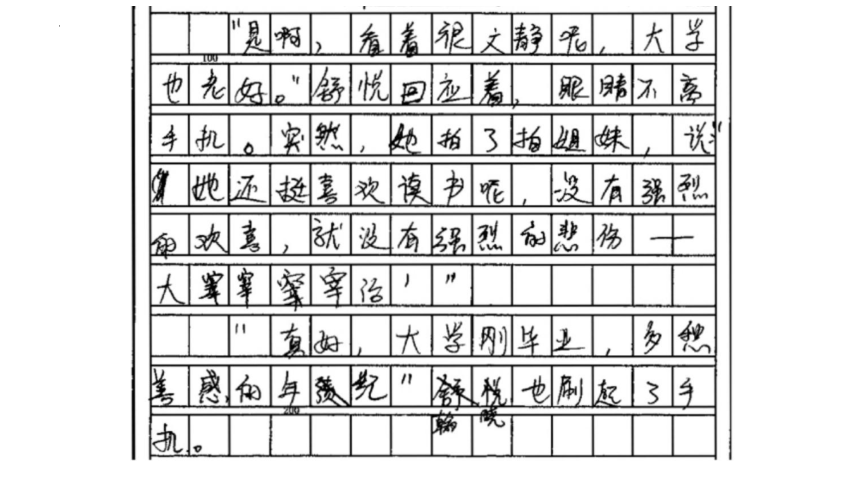 "是啊,看着很文静呢,大学
100
也老好。"舒悦回应着,眼睛不离
手机。突然,她拍了拍姐妹,说:"
她还挺喜欢读书呢,没有强烈
的欢喜,就没有强烈的悲伤——
大宰治'"
"真好,大学刚毕业,多愁
善感的年纪"舒悦也刷起了手
200
晓
机。